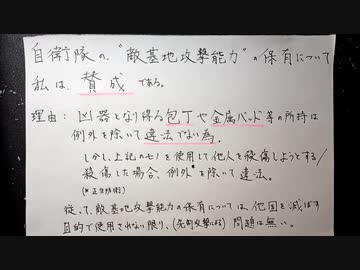 自衛隊の、“敵基地攻撃能力”の保有について
私は、賛成である。
理由：凶器となり得る包丁や金属バッド等の所持は
例外を除いて違法でない為。
しかし、上記のモノを使用して他人を殺傷しようとする/
殺傷した場合、例外*を除いて違法。
(*正当防衛)
従って、敵基地攻撃能力の保有については、他国を滅ぼす
目的で使用されない限り、(先制攻撃による)問題は無い。